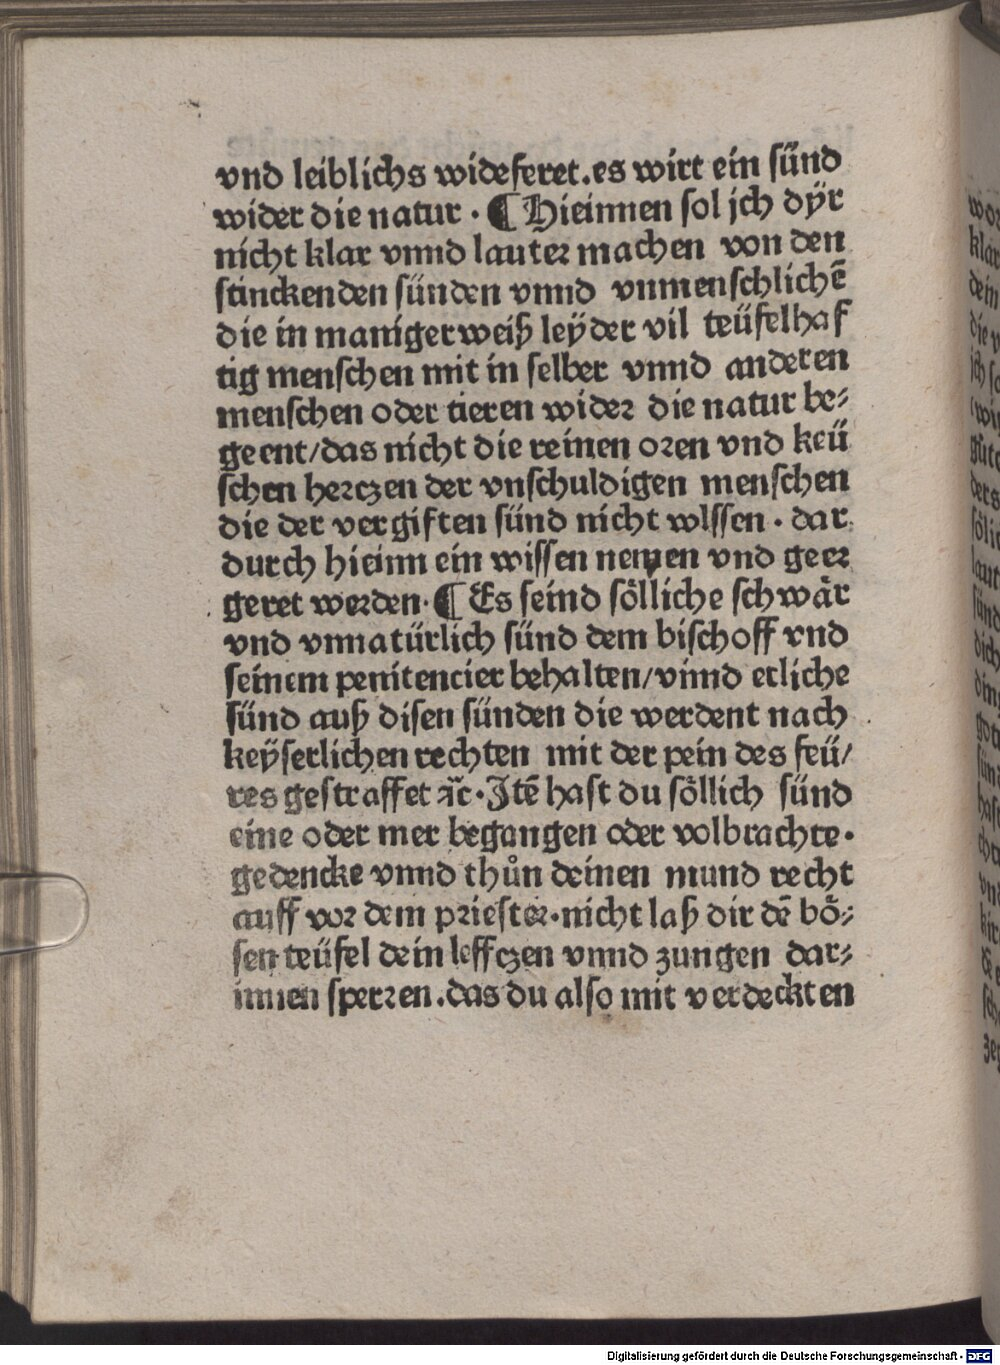 vnd leiblichs wideferet. es wirt ein sünd
wider die natur · ¶ Hieinnen sol jch dÿr
nicht klar vnnd lauter machen von den
stinckenden sünden vnnd vnmenschlichē
die in maniger weiß leÿder vil teüfelhaf
tig menschen mit in selber vnnd anderen
menschen oder tieren wider die natur be⸗
geent/das nicht die reinen oren vnd keü
schen herczen der vnschuldigen menschen
die der vergiften sünd nicht wissen · dar
durch hieinn ein wissen nemen vnd geer
geret werden· ¶ Es seind soͤlliche schwaͤr
vnd vnnatürlich sünd dem bischoff vnd
seinem penitencier behalten/vnnd etliche
sünd auß disen sünden die werdent nach
keÿserlichen rechten mit der pein des feü/
res gestraffet ⁊c̄· Jtē hast du soͤllich sünd
eine oder mer begangen oder volbrachte·
gedencke vnnd thůn deinen mund recht
auff vor dem priester·nicht laß dir dē boͤ⸗
sen teüfel dein leffczen vnnd zungen dar⸗
innen sperren.das du also mit verdeckten
Digitalisierung gefördert durch die Deutsche Forschungsgemeinschaft - DFG